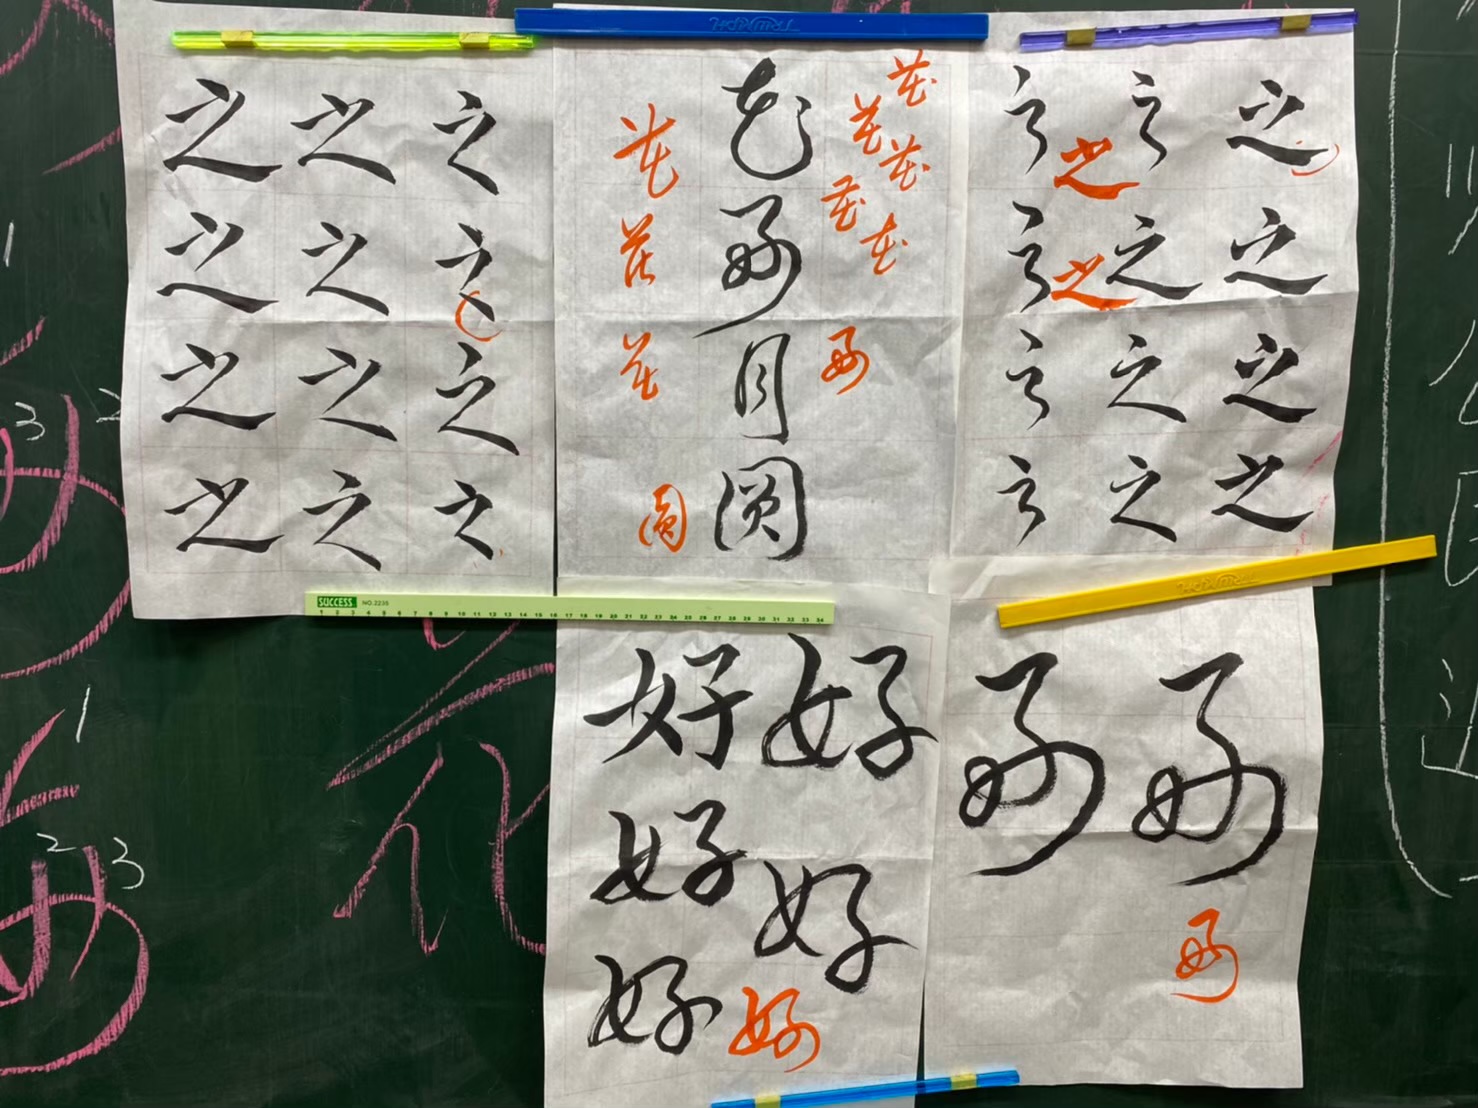 之 之 之
之 之 之
之 之 之
之 之 之
花
好
月
圓
花
花
花
花
花
花
花
花
好
圓
之 之 之
之 之 之
之 之 之
之 之 之
之
之
SUCCESS NO.2235
1 2 3 4 5 6 7 8 9 10 11 12 13 14 15 16 17 18 19 20 21 22 23 24 25 26 27 28 29 30 31 32 33 34
好 好
好
好
好
好
好 好
好
花
1
3 2
1
2 3